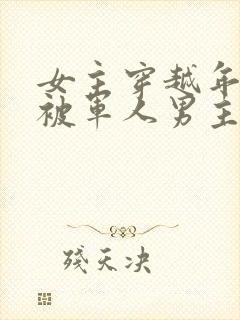 女主穿越年
被軍人男主
殘天决